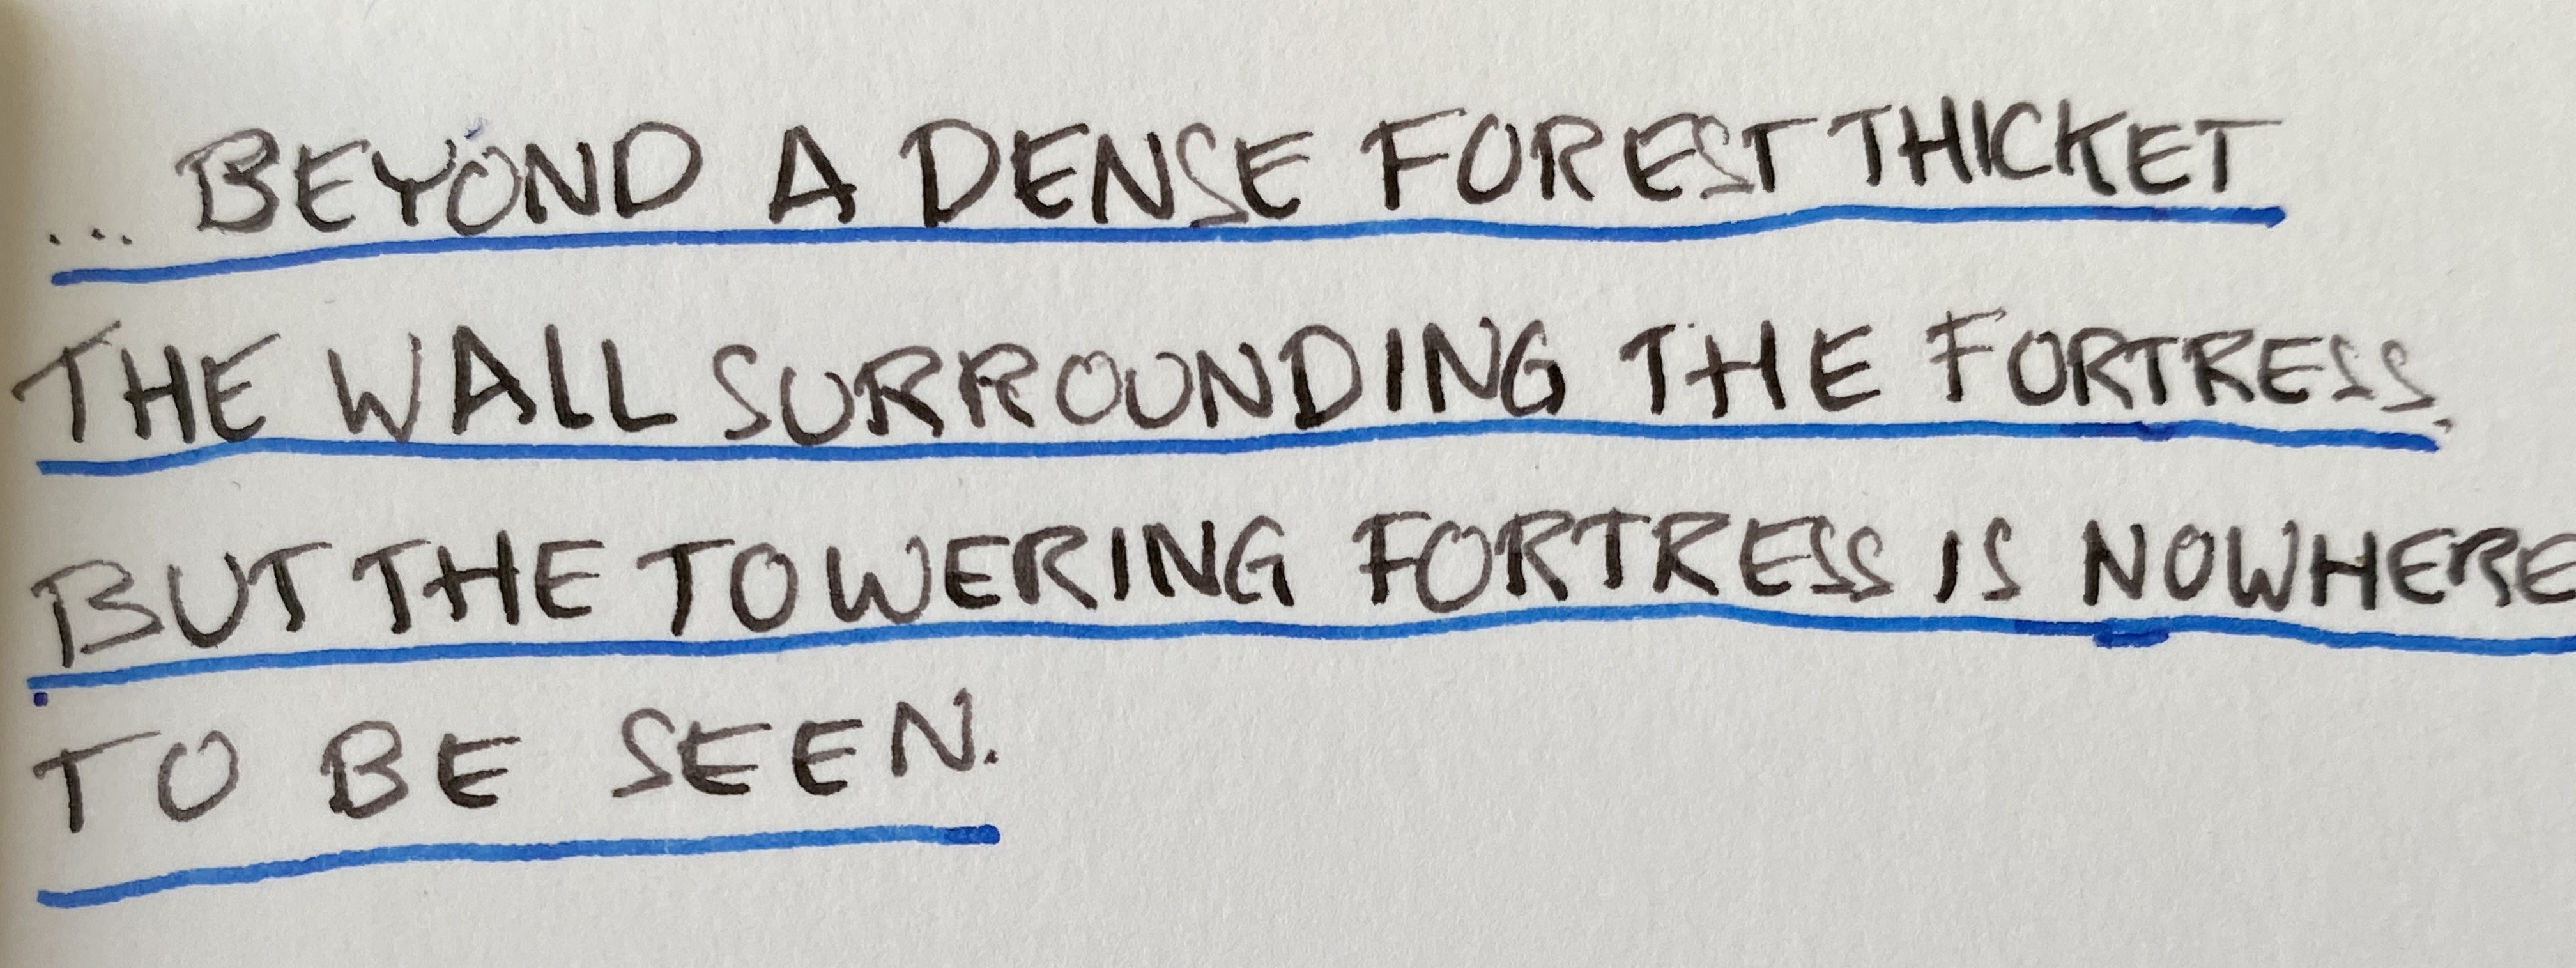 ... BEYOND A DENSE FOREST THICKET
THE WALL SURROUNDING THE FORTRESS.
BUT THE TOWERING FORTRESS IS NOWHERE
TO BE SEEN.